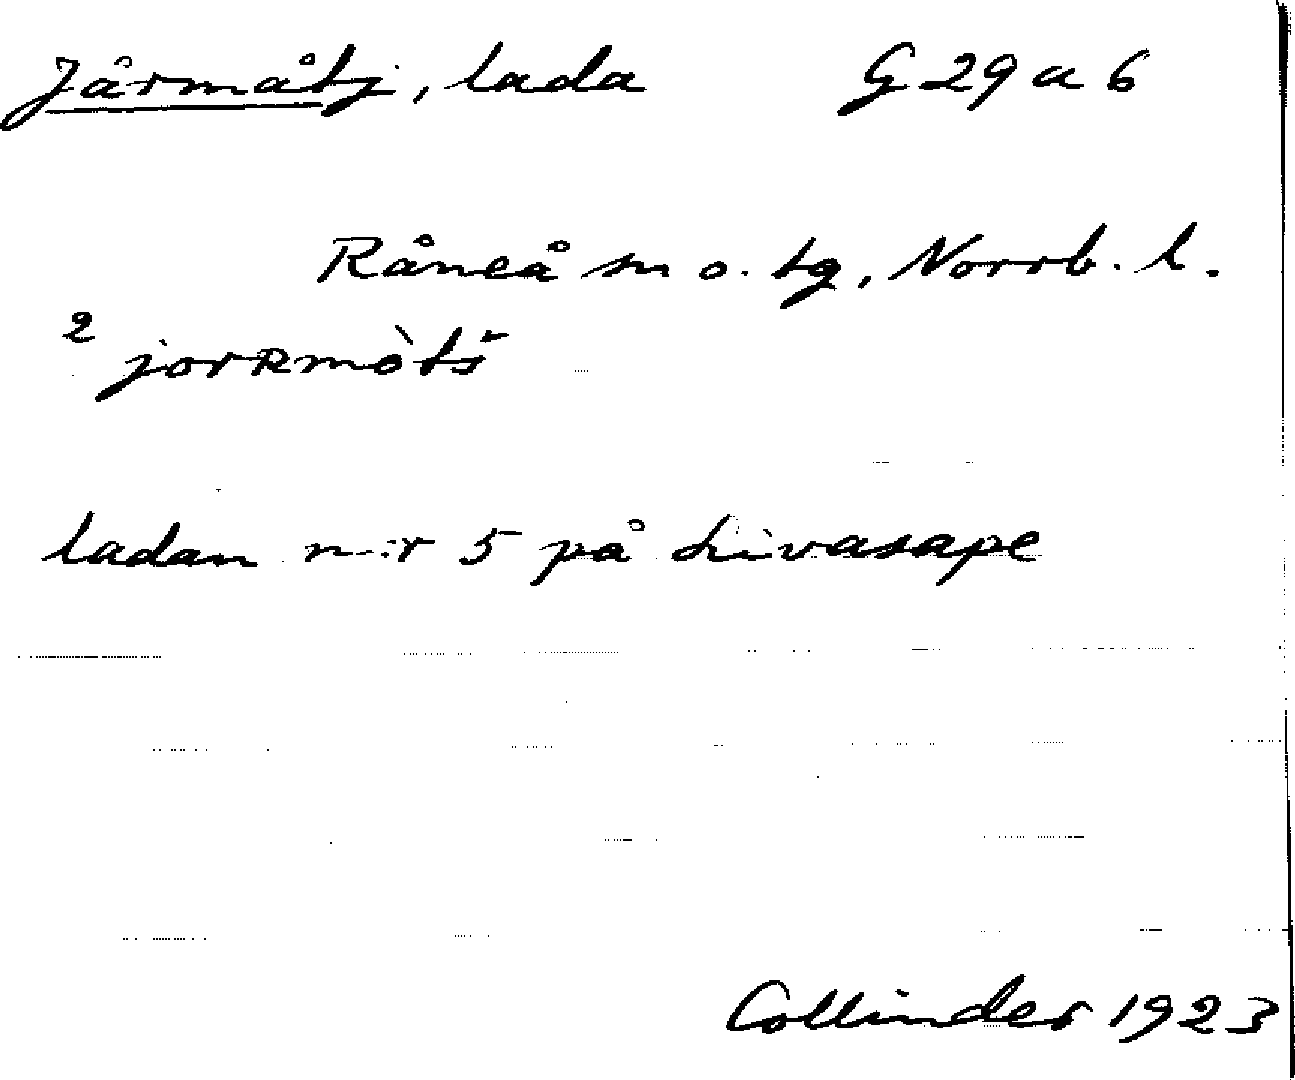 Jårmåtj, lada G 29 a 6
Råneå sn o. tg, Norrb. l.
2 jorRmòtš
ladan n:r 5 på Livasape
Collinder 1923